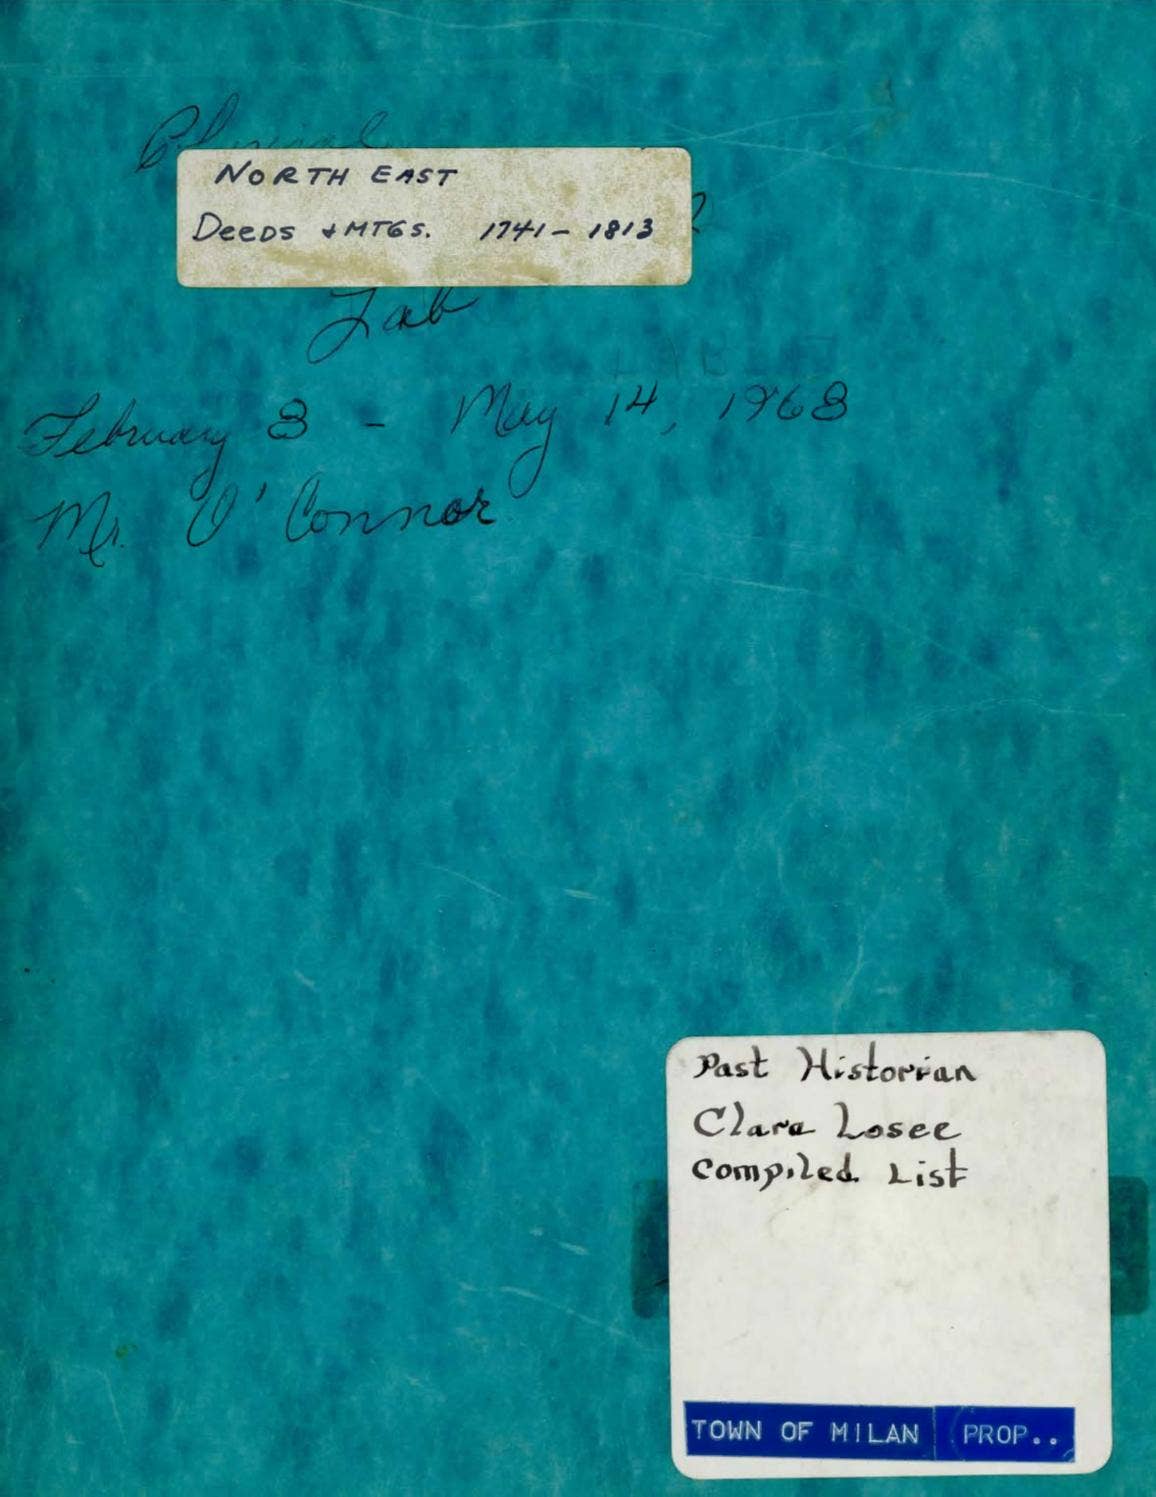 NORTH EAST
DEEDS & MTGS. 1741-1813
Lab
February 8 - May 14, 1968
Mr. O'Connor
Past Historian
Clara Losee
Compiled List
TOWN OF MILAN PROP..